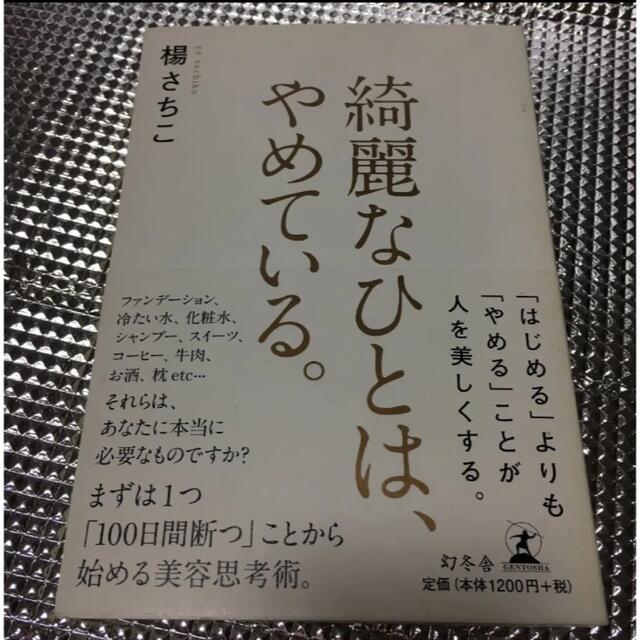 綺麗なひとは、
やめている。
楊さちこ
Yo sachiko
「はじめる」よりも
「やめる」ことが
人を美しくする。
ファンデーション、
冷たい水、化粧水、
シャンプー、スイーツ、
コーヒー、牛肉、
お酒、枕 etc…
それらは、
あなたに本当に
必要なものですか?
まずは1つ
「100日間断つ」ことから
始める美容思考術。
幻冬舎
GENTOSHA
定価(本体1200円+税)